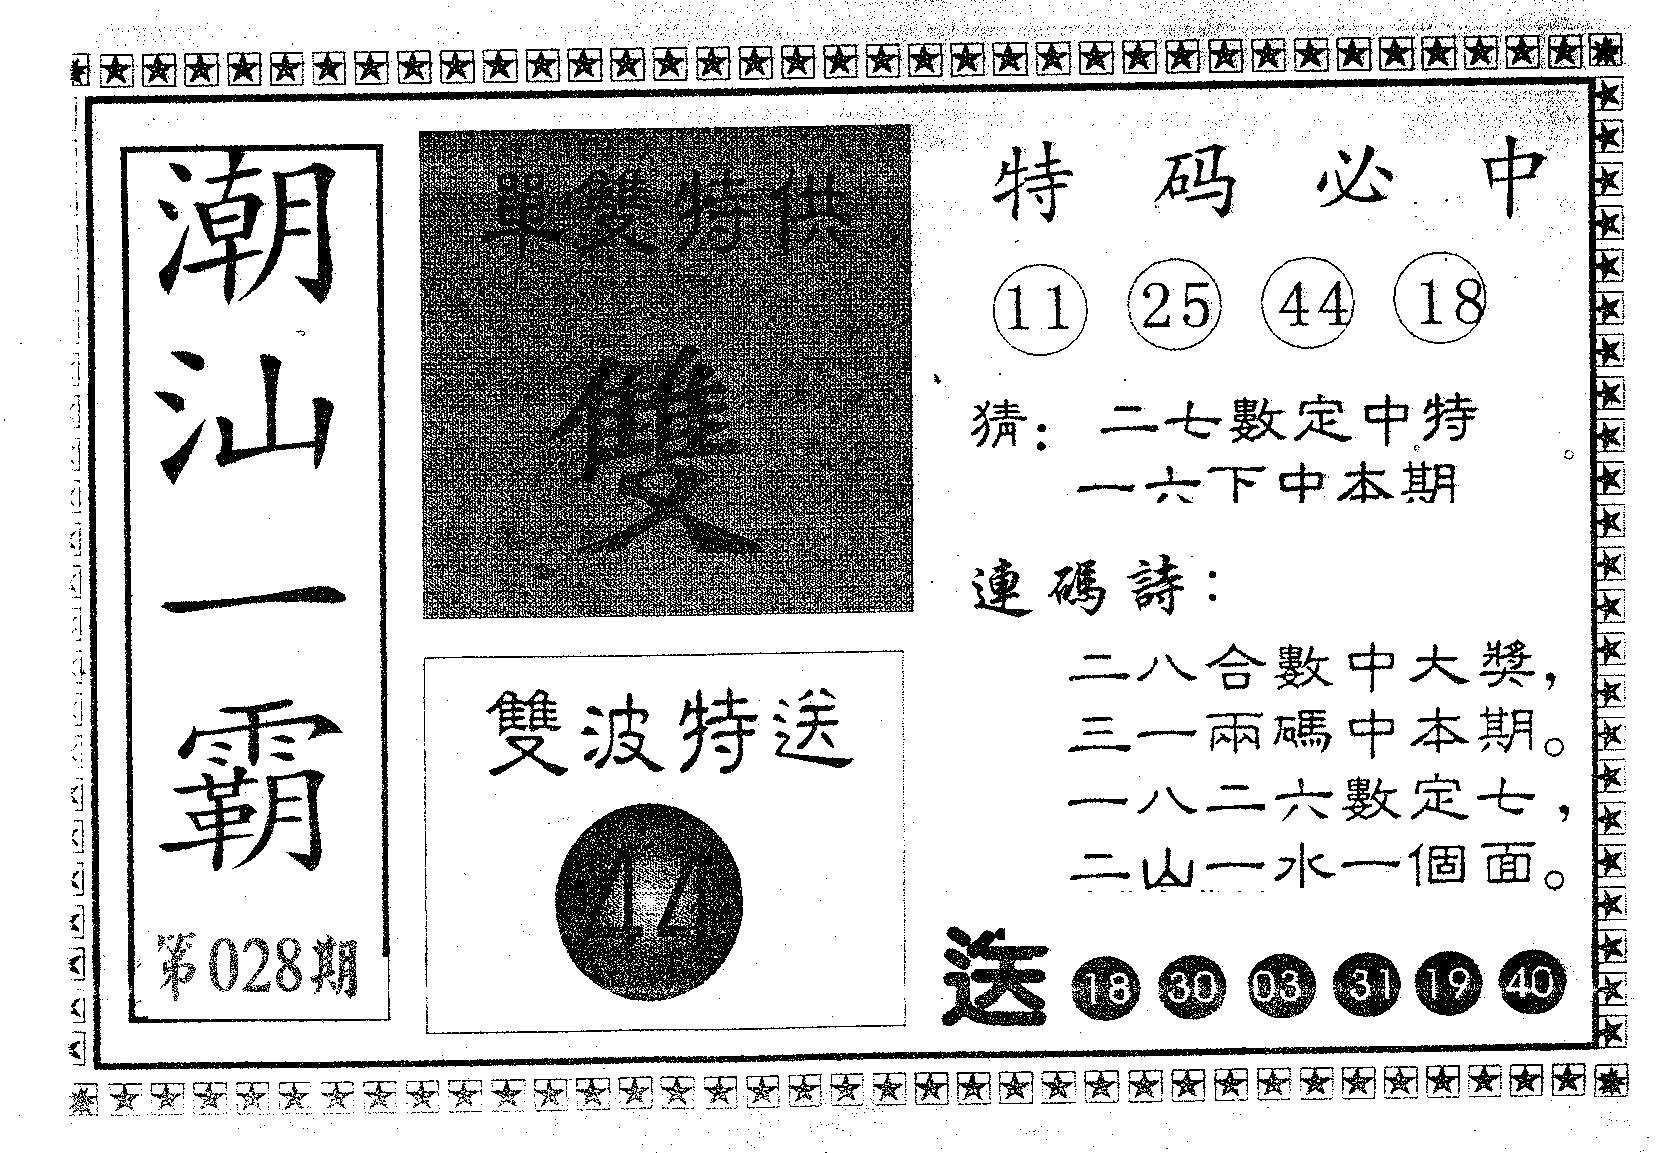 潮汕一霸
第028期
單雙特供
雙
雙波特送
44
特码必中
11 25 44 18
猜：二七數定中特
一六下中本期
連碼詩：
二八合數中大獎，
三一兩碼中本期。
一八二六數定七，
二山一水一個面。
送 18 30 03 31 19 40